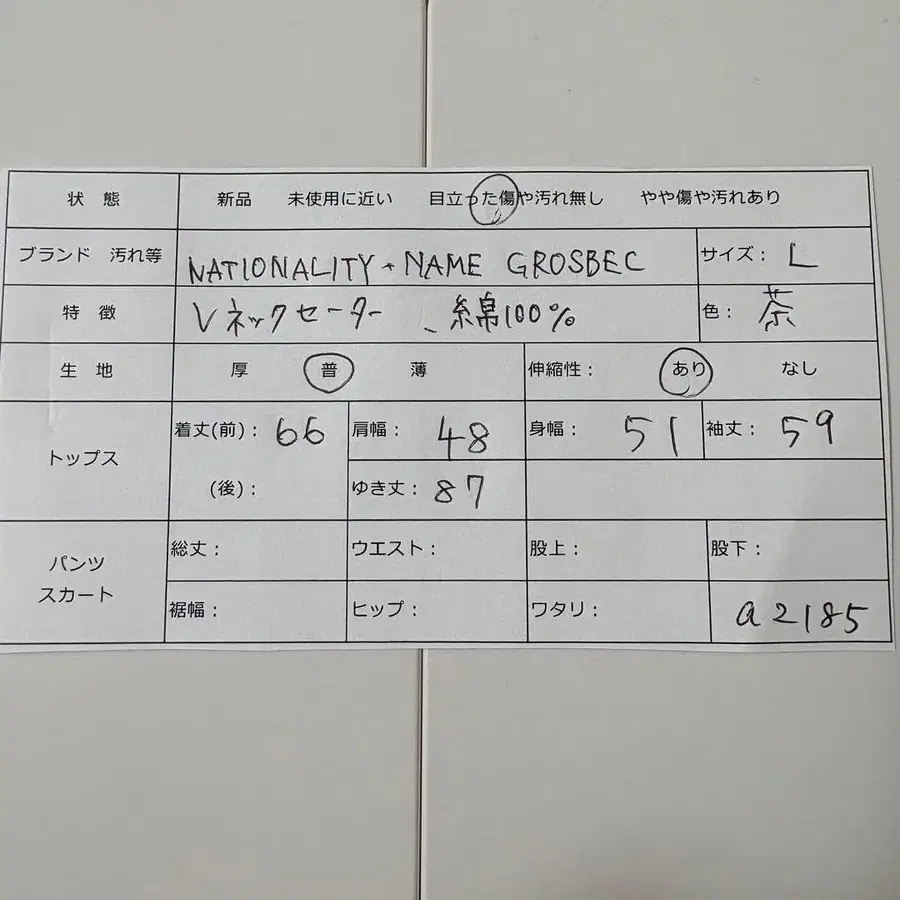 状 態 新品 未使用に近い 目立った傷や汚れ無し やや傷や汚れあり
ブランド 汚れ等 NATIONALITY + NAME GROSBEC サイズ： L
特 徴 Vネックセーター、綿100% 色： 茶
生 地 厚 普 薄 伸縮性： あり なし
トップス 着丈(前)： 66 肩幅： 48 身幅： 51 袖丈： 59
(後)： ゆき丈： 87
パンツ スカート 総丈： ウエスト： 股上： 股下：
裾幅： ヒップ： ワタリ： a2185